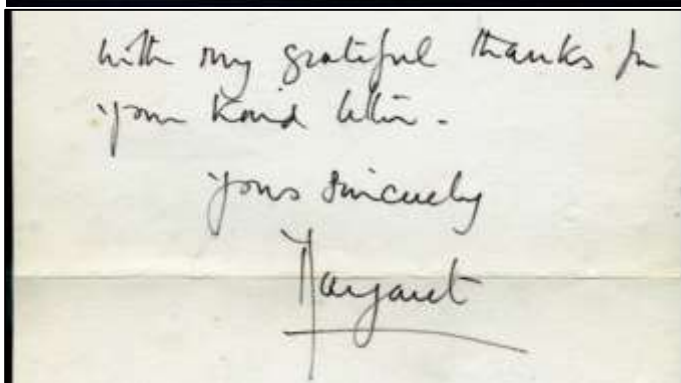 with my grateful thanks for
your kind letter.
Yours sincerely
Margaret